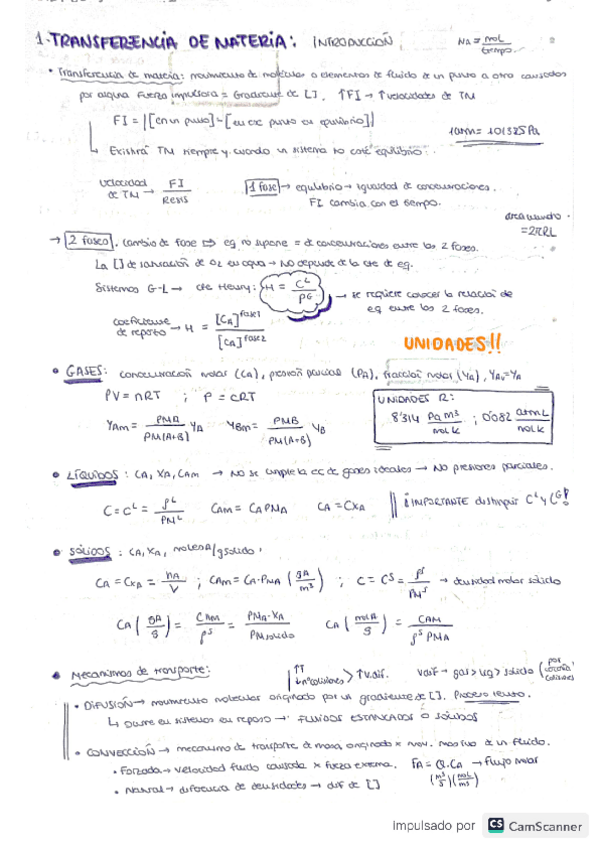 1. TRANSFERENCIA DE MATERIA: INTRODUCCIÓN NA = mol / tiempo
• Transferencia de materia: movimiento de moléculas o elementos de fluido de un punto a otro causados
por alguna Fuerza impulsora = Gradiente de [ ]. ↑FI → ↑ velocidades de TM
FI = |[en un punto] - [en ese punto en equilibrio]|
1atm = 101325 Pa
↳ Existirá TM siempre y cuando un sistema no esté equilibrio.
velocidad de TM → FI / Resis
1 fase → equilibrio → igualdad de concentraciones.
FI cambia con el tiempo.
= 2πRL
→ 2 fases. cambio de fase ⇒ eq no supone = de concentraciones entre las 2 fases.
La [ ] de saturación de O2 en agua → NO depende de la cte de eq.
Sistemas G-L → cte Henry: H = C^L / PG → se requiere conocer la relación de
eq entre las 2 fases.
coeficiente de reparto → H = [CA]^fase1 / [CA]^fase2
UNIDADES!!
• GASES: concentración molar (CA), presión parcial (PA), fracción molar (YA), YAV=YA
PV = nRT ; P = cRT
UNIDADES R:
8'314 Pa m³ / mol K ; 0'082 atm L / mol K
YAm = PMA / PM(A+B) YA YBm = PMB / PM(A+B) YB
• LÍQUIDOS: CA, XA, CAm → No se cumple la ec de gases ideales → No presiones parciales.
C = C^L = ρ^L / PM^L CAm = CA PMA CA = CXA ¡IMPORTANTE distinguir C^L y C^G!
• SÓLIDOS: CA, XA, moles A/g sólido.
CA = CXA = nA / V ; CAm = CA·PMA (gA / m³) ; C = C^S = ρ^S / PM^S → densidad molar sólido
CA (gA / g) = CAm / ρ^S = PMA·XA / PM sólido CA (mol A / g) = CAM / ρ^S PMA
• Mecanismos de transporte: ↑T ↓nº colisiones > ↑v.dif. vdif → gas > liq > sólido (por colisiones)
• DIFUSIÓN → movimiento molecular originado por un gradiente de [ ]. Proceso lento.
↳ Ocurre en sistemas en reposo → FLUIDOS ESTANCADOS o SÓLIDOS
• CONVECCIÓN → mecanismo de transporte de masa originado x mov. masivo de un fluido.
• Forzada → velocidad fluido causada x fuerza externa. FA = Q·CA → flujo molar
• Natural → diferencia de densidades → dif de [ ] (m³ / s)(mol / m³)
Impulsado por CS CamScanner